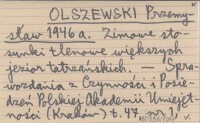 OLSZEWSKI Przemy-
sław 1946 a. Zimowe sto-
sunki tlenowe większych
jezior tatrzańskich. — Spra-
wozdania z Czynności i Posie-
dzeń Polskiej Akademii Umiejęt-
ności (Kraków) t. 47, nr 1